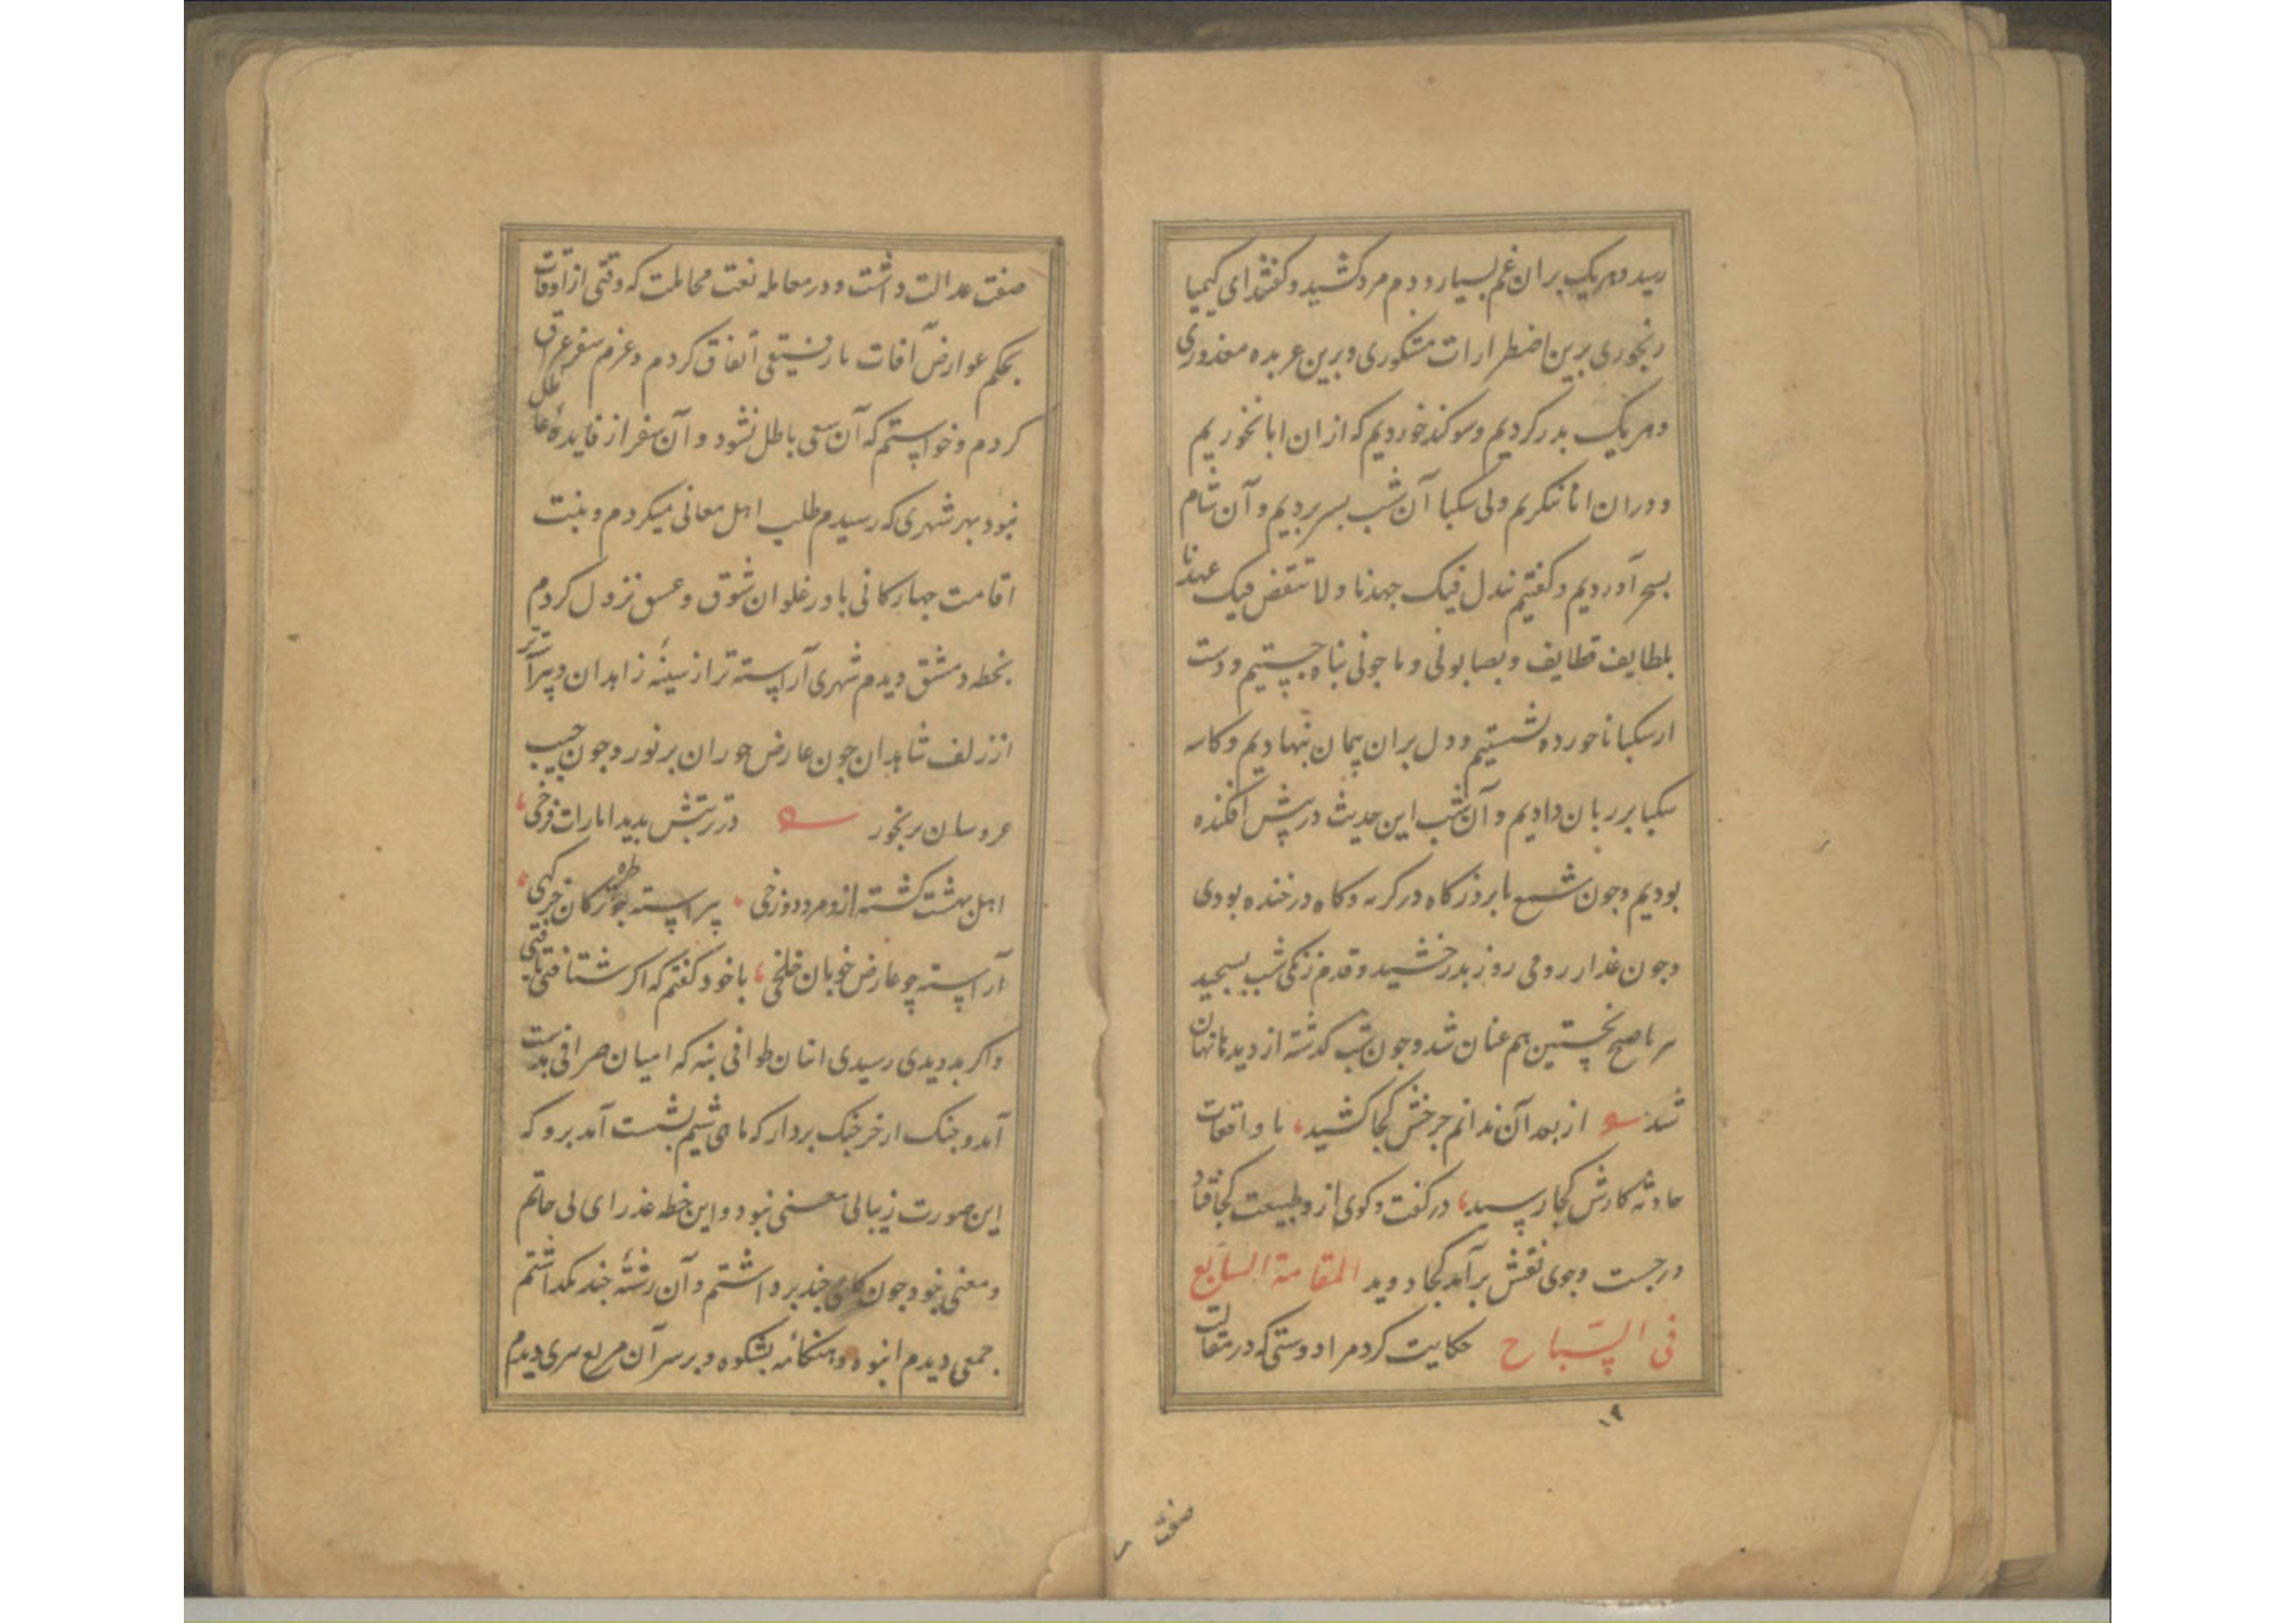 رسید و هریک بران غم بسیار و دم مرد کشید و گفتند ای کیمیا
رنجوری برین اضطرارات مشکوری و برین عربده معذوری
و هریک بدر کردیم و سوکند خوردیم که ازان ابا نخوریم
و دران انا ننکریم و لی سکبا آن شب بسر بردیم و آن شام
بسحر آوردیم و کفتیم نبذل فیک جهدنا و لا تنقض فیک عهدنا
بلطایف قطایف و بصابونی و ماجونی پناه جستیم و دست
از سکبا ناخورده شستیم و دل بران پیمان نهادیم و کاسه
سکبا بر زبان دادیم و آن شب این حدیث در پیش افکنده
بودیم و جون شمع با بروز کاه در کریه و کاه در خنده بودی
و جون عذار رومی روز بدرخشید و قدم زنکی شب بسجید
سر با صبح نخستین هم عنان شد و جون شب کذشته از دیدها نهان
شد از بعد آن ندانم جرخش کجا کشید، با واقعات
حادثه کارش کجا رسید، در کفت و کوی ازو طبیعت کجا فتاد
در جست و جوی نقش برآمد کجا دوید المقامة السابع
فی السّباح حکایت کرد مرا دوستی که در مقالت
۱۲
صفت
صفت عدالت داشت و در معامله نعت مجاملت که وقتی از اوقات
بحکم عوارض آفات با رفیقی اتفاق کردم و عزم سفر عراق
کردم و خواستم که آن سعی باطل نشود و آن سفر از فایدهٔ عاطل
نبود بهر شهری که رسیدم طلب اهل معانی میکردم و بنیت
اقامت جهارکانی با در غلوان شوق و عسق نزول کردم
بخطه دمشق دیدم شهری آراسته تر از سینهٔ زاهدان و پیراسته تر
از زلف شاهدان جون عارض حوران بر نور و جون جیب
عروسان بر بخور در تربتش بدید امارات فرخی،
اهل بهشت کشته ازو مرد دوزخی، پیراسته جو طره ترکان خرکهی،
آراسته جو عارض خوبان خلخی، با خود کفتم که اکر شتافتی یافتی
و اکر بدویدی رسیدی انبان طوافی بنه که امیان صرافی بدست
آمد و جنک از خرجنک بردار که ماهی شیم بشست آمد برو که
این صورت زیبا بی معنی نبود و این خطه عذرا ی بی حاتم
و معنی نبود جون کامی جند بر داشتم و آن رشتهٔ جند بکذاشتم
جمعی دیدم انبوه و هنکامهٔ بشکوه و بر سر آن مربع سری دیدم